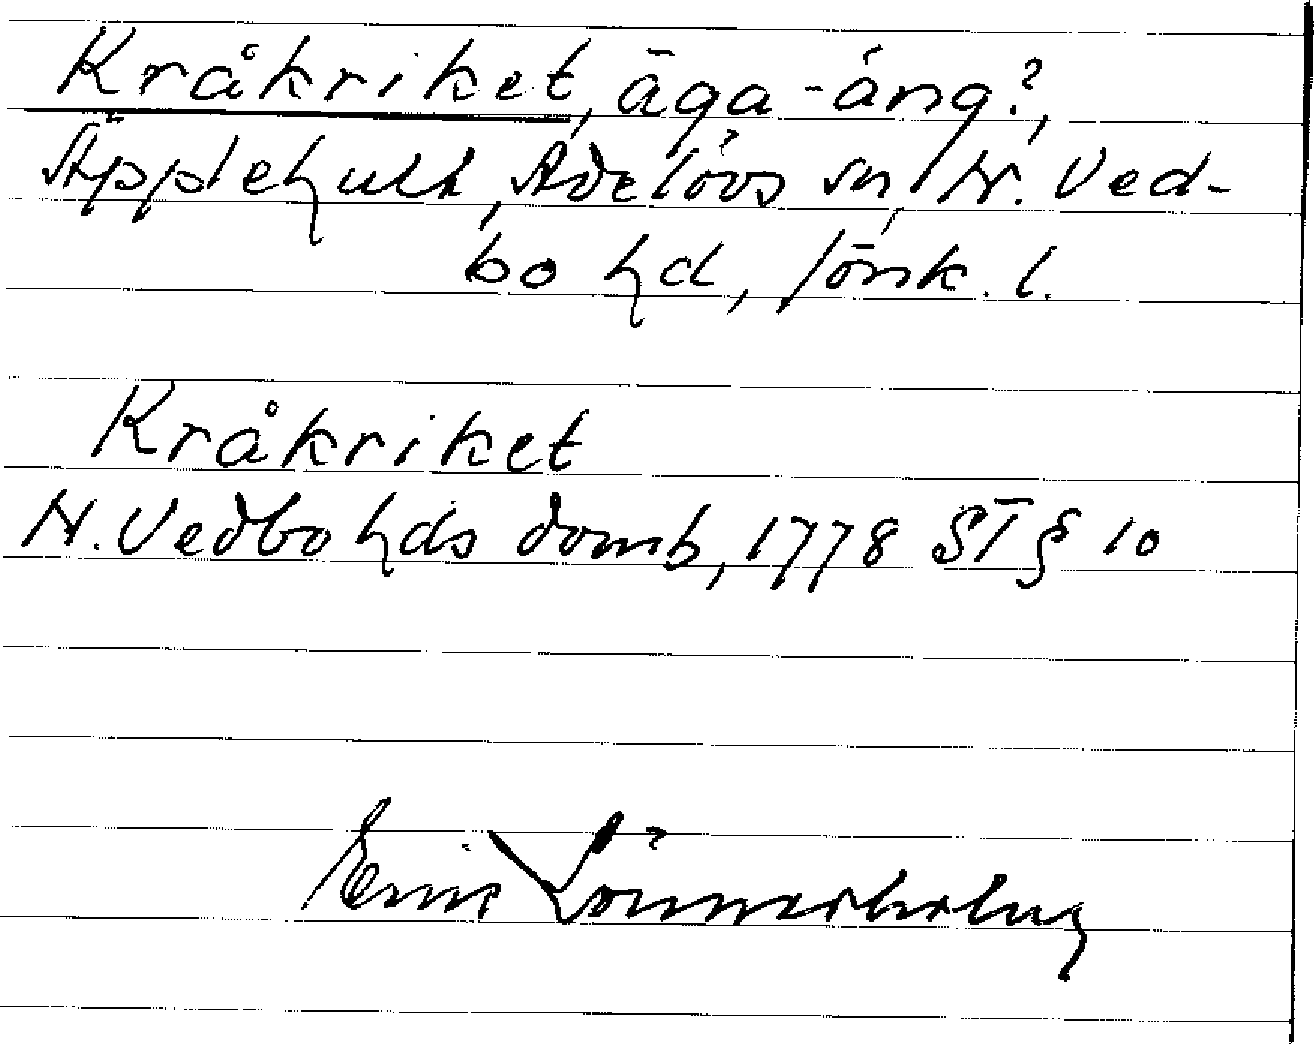 Kråkriket, äga - äng?,
Äpplehult, Adelövs sn, N. Ved-
bo hd, Jönk. l.
Kråkriket
N. Vedbo hds domb, 1778 ST § 10
Eric Lönnerholm